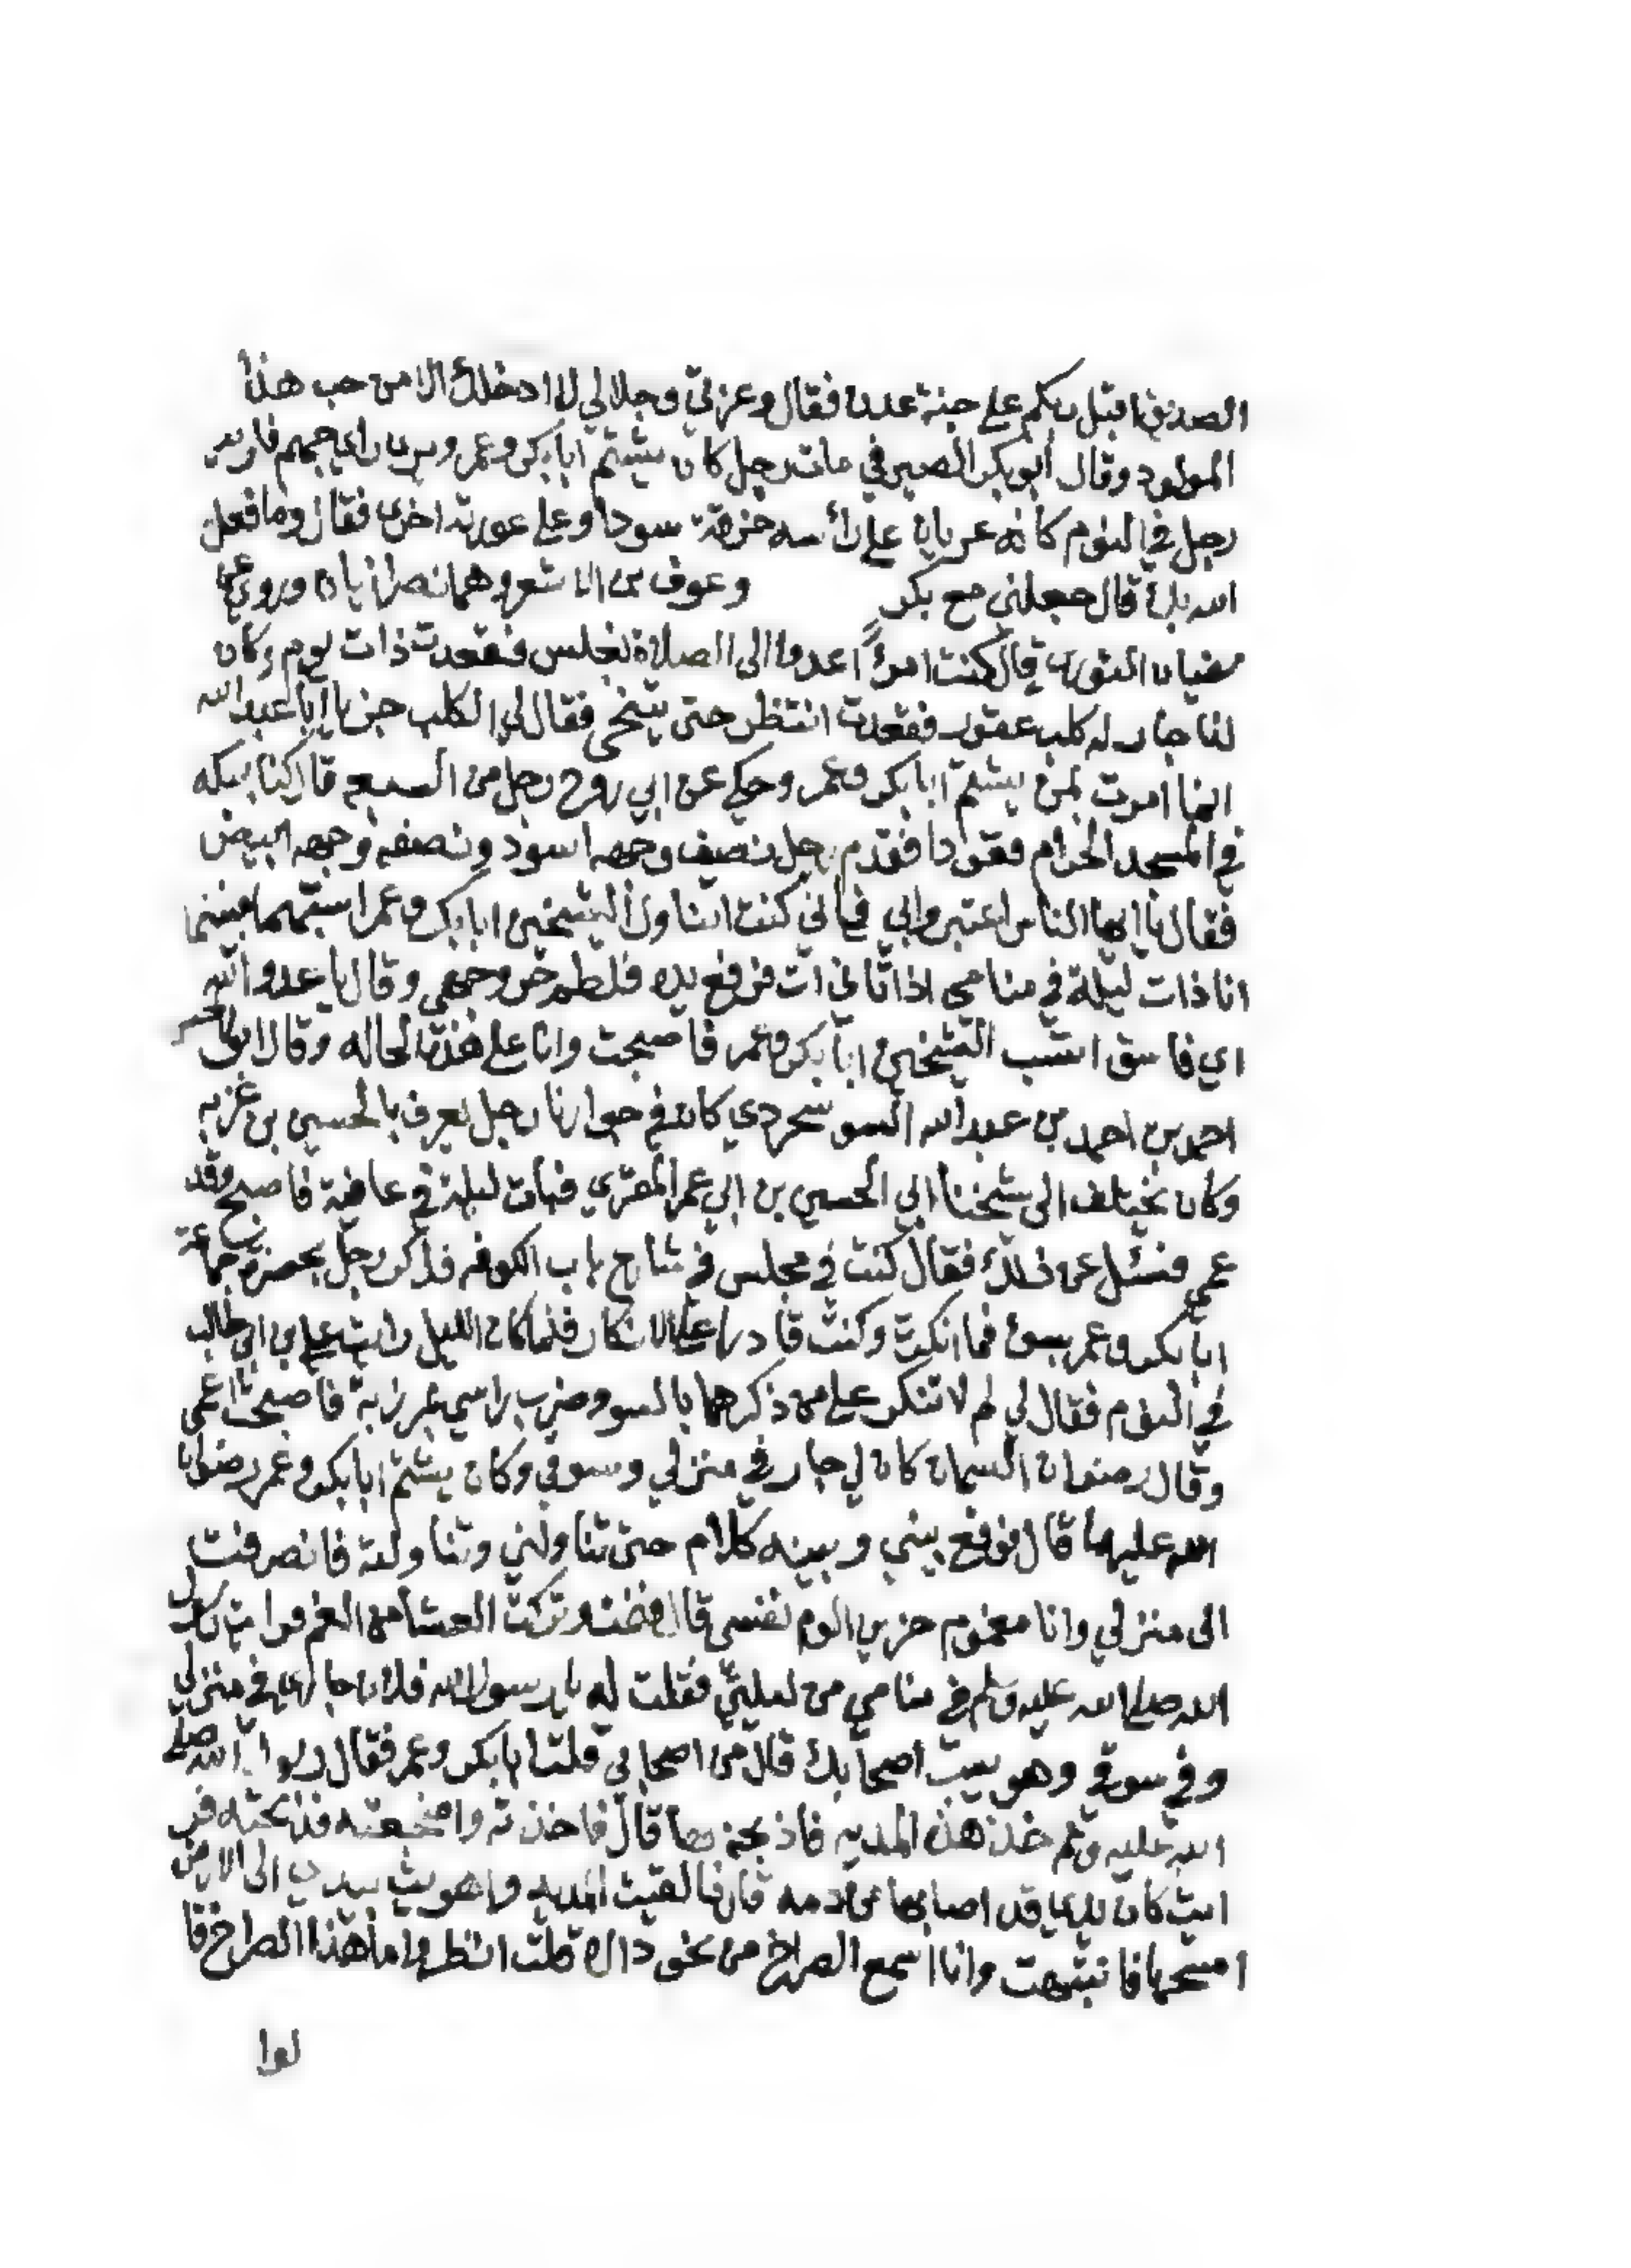 الصديق اقبل ربكم على جنة عدن فقال وعزتي وجلالي لا ادخلك الا من حب هذا
المولود وقال ابو بكر الصيرفي مات رجل كان يشتم ابا بكر وعمر ويرى راي جهم فاريه
رجل في النوم كانه عريان على رأسه خرقة سودا وعلى عورته اخرى فقال وما فعل
الله بك قال جعلني مع بكر وعوف بن الاشعر وهما نصرانيان وروي عن
سفيان الثوري قال كنت امرأً اعدوا الى الصلاة بغلس فقعدت ذات يوم وكان
لنا جار له كلب عقور فقعدت انتظر حتى يتنحى فقال لي الكلب جز يا ابا عبد الله
انما امرت بمن يشتم ابا بكر وعمر وحكي عن ابي روح رجل من الشيعه قال كنا بمكه
في المسجد الحرام قعودا فقدم رجل نصف وجهه اسود ونصف وجهه ابيض
فقال يا ايها الناس اعتبروا بي فاني كنت اتناول الشيخين ابا بكر وعمر اشتمهما فبينما
انا ذات ليلة في منامي اذ اتاني ات فرفع يده فلطم حر وجهي وقال يا عدو الله
اي فاسق اتسب الشيخين ابا بكر وعمر فاصبحت وانا على هذه الحاله وقال ابو الحسن
احمد بن احمد بن عبد الله السوسنجردي كان في جوارنا رجل يعرف بالحسين بن عزبه
وكان يختلف الى شيخنا ابي الحسين بن ابي عمر المقري فبات ليلة في عافية فاصبح وقد
عمي فسئل عن ذلك فقال كنت في مجلس في شارع باب الكوفه فذكر رجل بحضرة جماعة
ابا بكر وعمر بسوء فما انكرت وكنت قادرا على الانكار فلما كان الليل رايت علي بن ابي طالب
في النوم فقال لي لم لا تنكر على من ذكرهما بالسو وضرب راسي بمرزبة فاصبحت اعمى
وقال رضوان السمان كان لي جار في منزلي وسوقي وكان يشتم ابا بكر وعمر رضوان
الله عليهما قال فوقع بيني وبينه كلام حتى تناولني وتناولته فانصرفت
الى منزلي وانا مغموم حزين الوم نفسي قال فنمت وتركت العشا من الغم فرايت رسول
الله صلى الله عليه وسلم في منامي من ليلتي فقلت له يا رسول الله فلان جاري في منزلي
وفي سوقي وهو يسب اصحابك قال من اصحابي قلت ابا بكر وعمر فقال رسول الله صلى
الله عليه وسلم خذ هذه المديه فاذبحه بها قال فاخذته واضجعته فذبحته فر
ايت كان يدي قد اصابها من دمه قال فالقيت المديه واهويت بيدي الى الارض
امسحها فانتبهت وانا اسمع الصراخ من نحو داره قلت انظروا ما هذا الصراخ قا
لوا